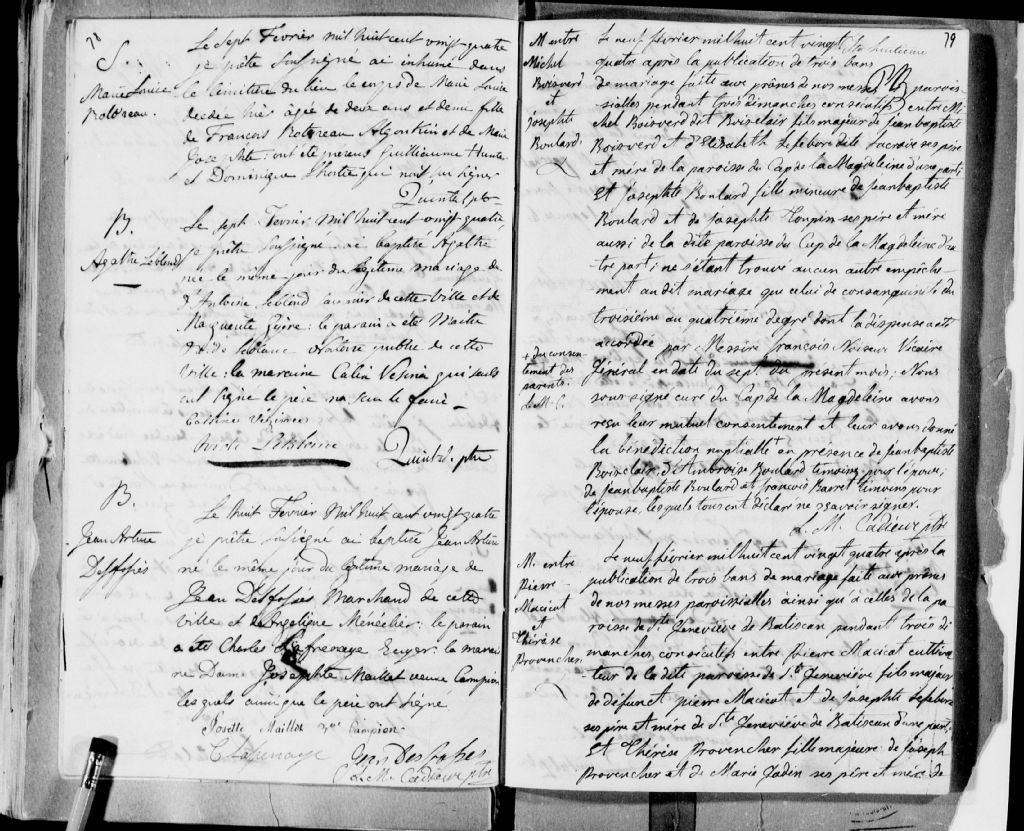 78
S.
Marie Louise
Le sept Fevrier mil huit cent vingt-quatre
je prêtre soussigné ai inhumé dans
le cimetiere du lieu le corps de Marie Louise
decedée hier âgée de deux ans et demi fille
de François Algonkin et de Marie
Josephte: ont été présens Guilliaume Hunter
et Dominique qui n'ont su signer
Quintal ptre
B.
Agathe Leblond
Le sept Fevrier mil huit cent vingt-quatre
je prêtre soussigné ai baptisé Agathe
née le même jour du légitime mariage de
d'Antoine Leblond de cette ville et de
Marguerite : le parain a été Maitre
Leblanc Notaire public de cette
ville: la maraine qui seuls
ont signé le pere n'a sçu le faire
Quintal ptre
B.
Jean Arture
Desfossés
Le huit Fevrier mil huit cent vingt-quatre
je prêtre soussigné ai baptisé Jean Arture
né le même jour du légitime mariage de
Jean Desfossés Marchand de cette
ville et de Angelique : le parain
a été Charles la marai
ne Dame Josephte Maillet veuve Campion
lesquels ainsi que le pere ont signé
Josette Maillet Campion
Jean Desfossés
L. M. Cadieux ptre
79
M entre
Michel
Boisverd
et
josephte
Boulard
Le neuf février mil huit cent vingt
quatre après la publication de trois bans
de mariage faite aux prônes de nos messes parois-
sialles pendant trois dimanches consécutifs entre Mi
chel Boisverd dit Boisclair fils majeur de jean baptiste
Boisverd et d'Elisabeth Lefebvre dite Lacroix ses père
et mère de la paroisse du Cap de la Magdeleine d'une part;
Et josephte Boulard fille mineure de jean baptiste
Boulard et de josephte Toupin ses père et mère
aussi de la dite paroisse du Cap de la Magdeleine d'au
tre part; ne s'étant trouvé aucun autre empêche-
ment au dit mariage que celui de consanguinité du
troisième au quatrième degré dont la dispense a été
accordée par Messire françois Noiseux Vicaire
+ du consen-
tement des
parents.
L. M. C.
général en date du sept du présent mois; Nous
soussigné curé du Cap de la Magdeleine avons
reçu leur mutuel consentement + et leur avons donné
la bénédiction nuptialle en présence de jean baptiste
Boisclair, d'Ambroise Boulard temoins pour l'époux;
de jean baptiste Boulard et françois Barret temoins pour
l'épouse, lesquels tous ont déclaré ne savoir signer.
L. M. Cadieux ptre
M. entre
Pierre
Macicot
et
Thérèse
Provencher
Le neuf février mil huit cent vingt quatre après la
publication de trois bans de mariage faite aux prônes
de nos messes paroissialles ainsi qu'à celles de la pa
roisse de Ste Geneviève de Batiscan pendant trois di
manches consécutifs entre pierre Macicot cultiva
teur de la dite paroisse de Ste Geneviève fils majeur
de défunt pierre Macicot et de josephte Lefebvre
ses père et mère de Ste Geneviève de Batiscan d'une part;
Et Thérèse Provencher fille majeure de joseph
Provencher et de Marie Jadin ses père et mère de